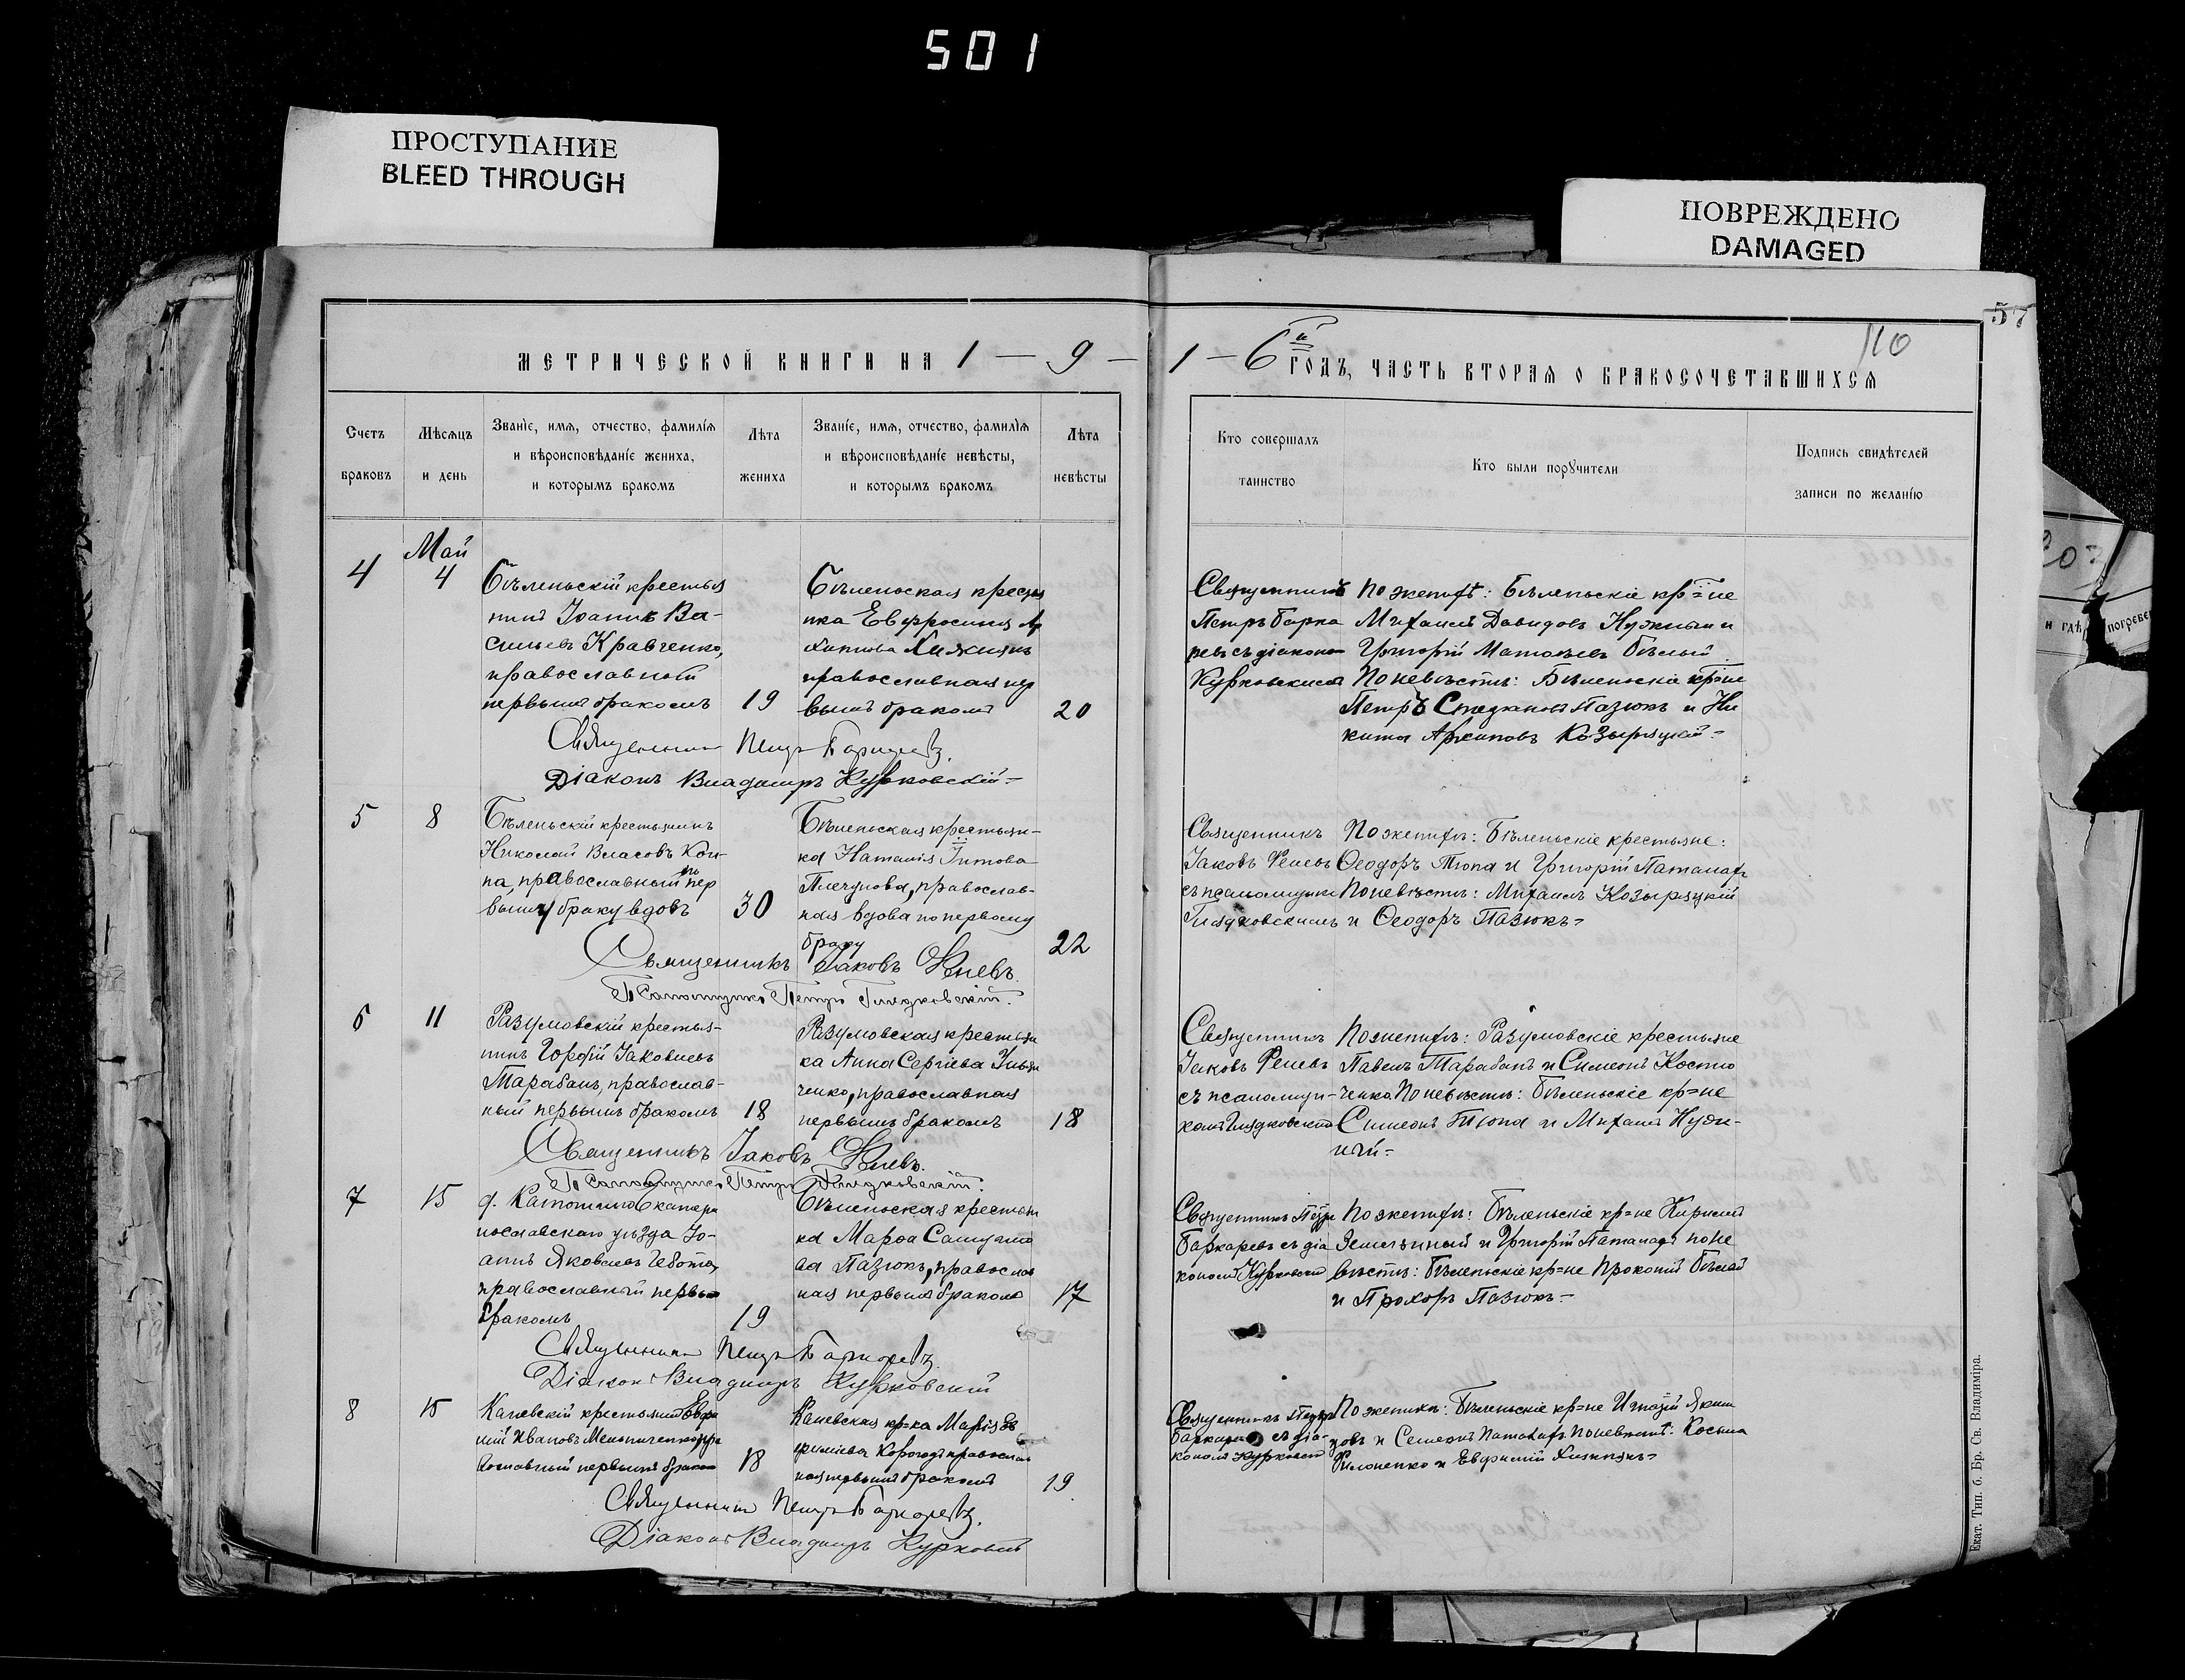 501
ПРОСТУПАНИЕ
BLEED THROUGH
ПОВРЕЖДЕНО
DAMAGED
57
110
МЕТРИЧЕСКОЙ КНИГИ НА 1 — 9 — 1 — 6й ГОДЪ, ЧАСТЬ ВТОРАЯ О БРАКОСОЧЕТАВШИХСЯ
Счетъ
браковъ
Мѣсяцъ
и день
Званіе, имя, отчество, фамилія
и вѣроисповѣданіе жениха,
и которымъ бракомъ
Лѣта
жениха
Званіе, имя, отчество, фамилія
и вѣроисповѣданіе невѣсты,
и которымъ бракомъ
Лѣта
невѣсты
Кто совершалъ
таинство
Кто были поручители
Подпись свидѣтелей
записи по желанію
4
Май
4
Бѣленьскій крестья
нинъ Іоаннъ Ва-
сильевъ Кравченко,
православный
первымъ бракомъ
19
Бѣленьская крестья
нка Евфросинія Ар
хипова Хижнякъ
православная пер
вымъ бракомъ
20
Священникъ
Петръ Барка
ревъ съ діакономъ
Курковскимъ
По женихѣ: Бѣленьскіе кр=не
Михаилъ Давидовъ Нужный и
Григорій Матвѣевъ Бѣлый
По невѣстѣ: Бѣленьскіе кр=не
Петръ Стефановъ Пазюкъ и Ни
кита Архиповъ Козыряцкій=
Священникъ Петръ Баркаревъ.
Діаконъ Владимиръ Курковскій=
5
8
Бѣленьскій крестьянинъ
Николай Власовъ Коп-
па, православный по пер
вому браку вдовъ
30
Бѣленьская крестьян-
ка Наталія Титова
православ-
ная вдова по первому
браку
22
Священникъ
Іаковъ
съ псаломщик
Гладковскимъ
По женихѣ: Бѣленьскіе крестьяне:
Ѳеодоръ Тюпа и Григорій
По невѣстѣ: Михаилъ Козыряцкій
и Ѳеодоръ Пазюкъ=
Священникъ Іаковъ
Псаломщикъ Петръ Гладковскій.
6
11
Разумовскій крестья-
нинъ Іаковлевъ
Тарабанъ, православ-
ный первымъ бракомъ
18
Разумовская крестьян
ка Анна Сергіева Улья
ченко, православная
первымъ бракомъ
18
Священникъ
Іаковъ
съ псаломщи-
комъ Гладковскимъ
По женихѣ: Разумовскіе крестьяне
Павелъ Тарабанъ и Симеонъ Костю
ченко По невѣстѣ: Бѣленьскіе кр=не
Симеонъ Тюпа и Михаилъ Нуж-
ный=
Священникъ Іаковъ
Псаломщикъ Петръ Гладковскій.
7
15
Екатери
нославскаго уѣзда Іо-
аннъ Яковлевъ Чебота,
православный первы
бракомъ
19
Бѣленьская крестьян
ка Марѳа Самуило
ва Пазюкъ, православ
ная первымъ бракомъ
17
Священникъ Петръ
Баркаревъ съ діа
кономъ Курковски
По женихѣ: Бѣленьскіе кр=не Кирилъ
и Григорій по не
вѣстѣ: Бѣленьскіе кр=не Прокопій Бѣлый
и Прохоръ Пазюкъ=
Священникъ Петръ Баркаревъ.
Діаконъ Владимиръ Курковскій
8
15
Каневскій крестьянинъ Евфи
мій Ивановъ Мельниченко пра
вославный первымъ браком
18
Каневская кр=ка Марія Ев
фиміева православ
ная первымъ бракомъ
19
Священникъ Петръ
Баркаревъ съ діа-
кономъ Курковски
По женихѣ: Бѣленьскіе кр=не Игнатій Яким
овъ и Семеонъ По невѣстѣ: Косьма
Филоненко и Евфимій Хижнякъ=
Священникъ Петръ Баркаревъ.
Діаконъ Владимиръ Курковскій
Екат. Тип. б. Бр. Св. Владиміра.
и гдѣ
погребе